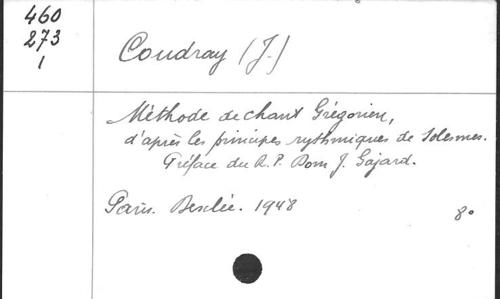 460
273
1
Coudray (J.)
Méthode de chant Grégorien,
d'après les principes rythmiques de Solesmes.
Préface du R. P. Dom J. Gajard.
Paris. Desclée. 1948
8°